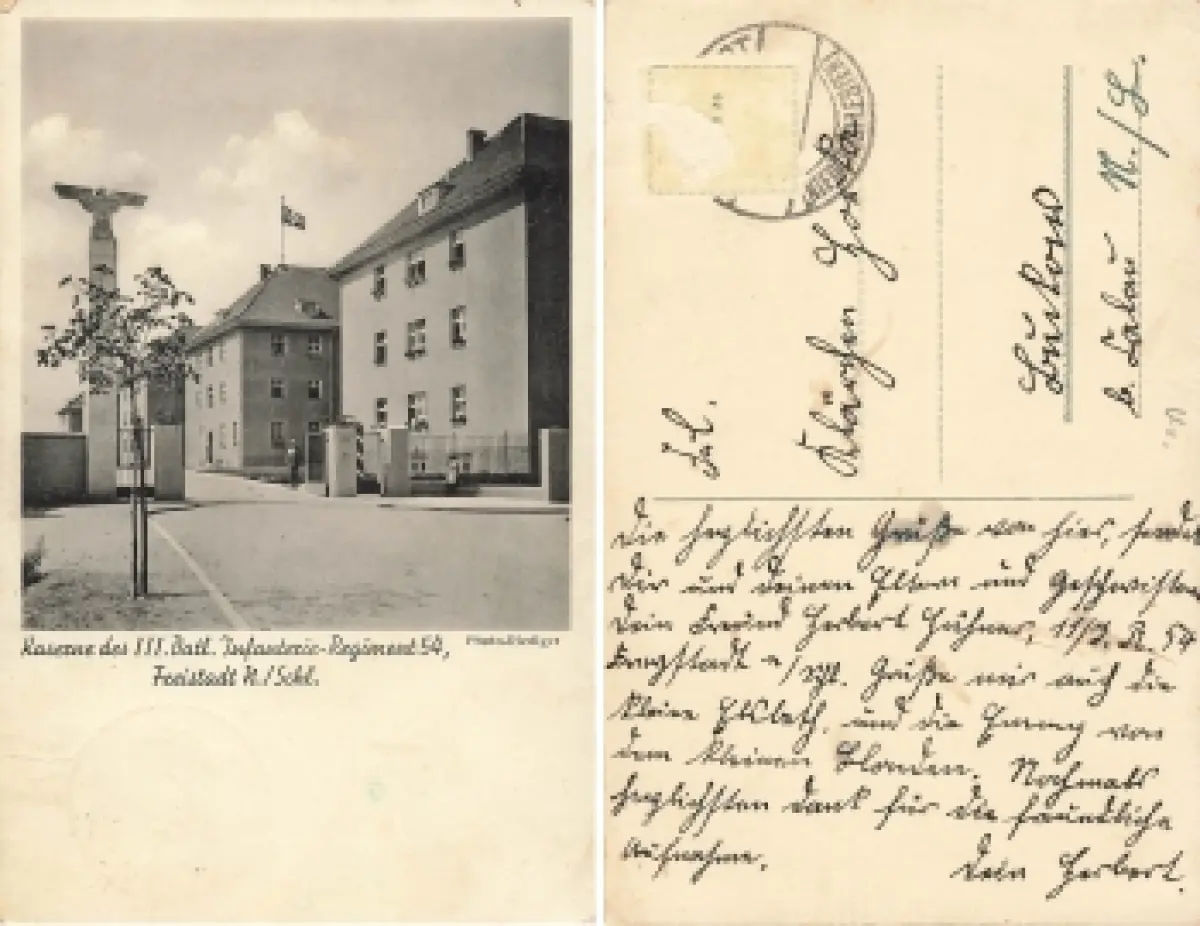 Kaserne des III. Batl. Infanterie-Regiment 54,
Freistadt N./Schl.
Frl.
Klärchen
b. N./L.
Die herzlichsten Grüße von hier, sendet
Dir und deinen Eltern und Geschwistern
Dein Freund Herbert 11/I.R. 54
Freystadt n/Schl. Grüße mir auch die
kleine Elsbeth, und die von
dem kleinen Blonden. Nochmals
herzlichsten Dank für die freundliche
Aufnahme.
Dein Herbert.